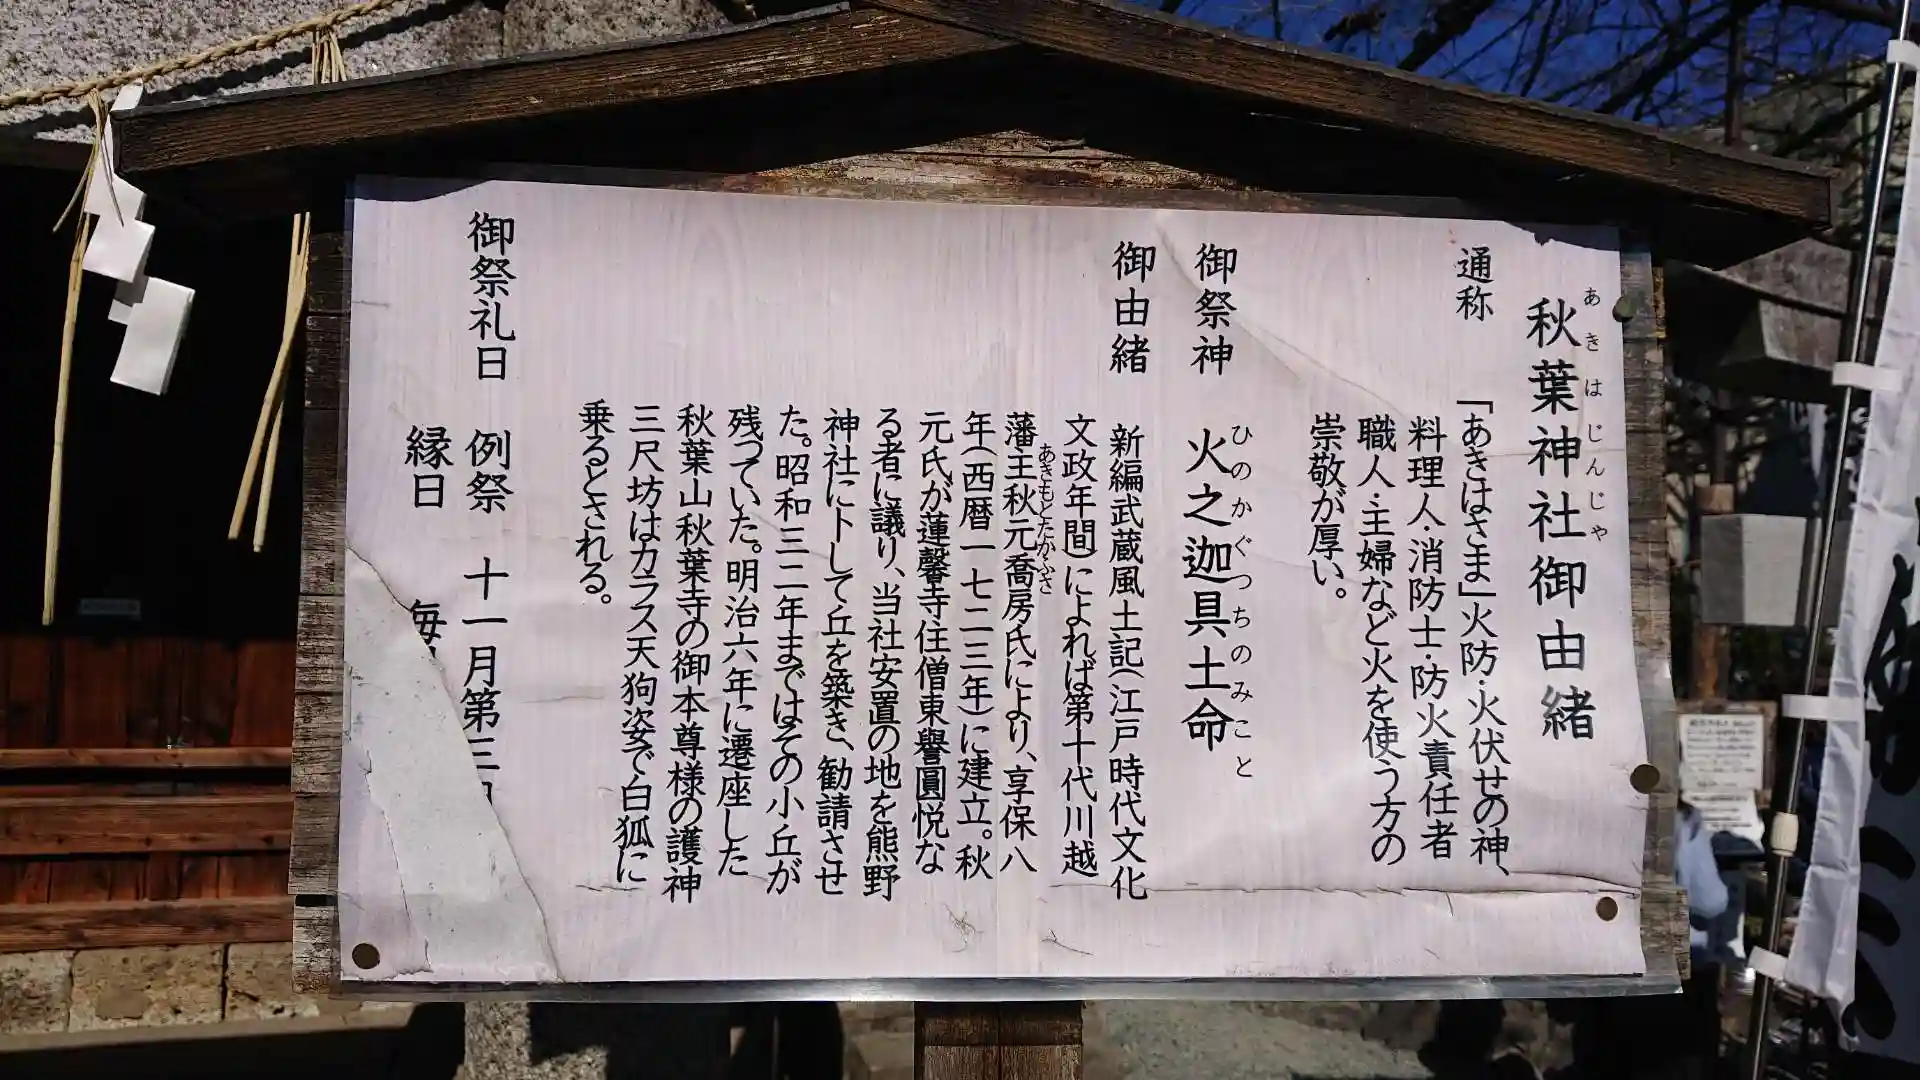 秋葉神社御由緒
あきはじんじゃ
通称 「あきはさま」火防・火伏せの神、
料理人・消防士・防火責任者
職人・主婦など火を使う方の
崇敬が厚い。
御祭神 火之迦具土命
ひのかぐつちのみこと
御由緒 新編武蔵風土記(江戸時代文化
文政年間)によれば第十代川越
藩主秋元喬房氏により、享保八
あきもとたかふさ
年(西暦一七二三年)に建立。秋
元氏が蓮馨寺住僧東譽圓悦な
る者に議り、当社安置の地を熊野
神社に卜して丘を築き、勧請させ
た。昭和三二年まではその小丘が
残っていた。明治六年に遷座した
秋葉山秋葉寺の御本尊様の護神
三尺坊はカラス天狗姿で白狐に
乗るとされる。
御祭礼日 例祭 十一月第三
縁日 毎